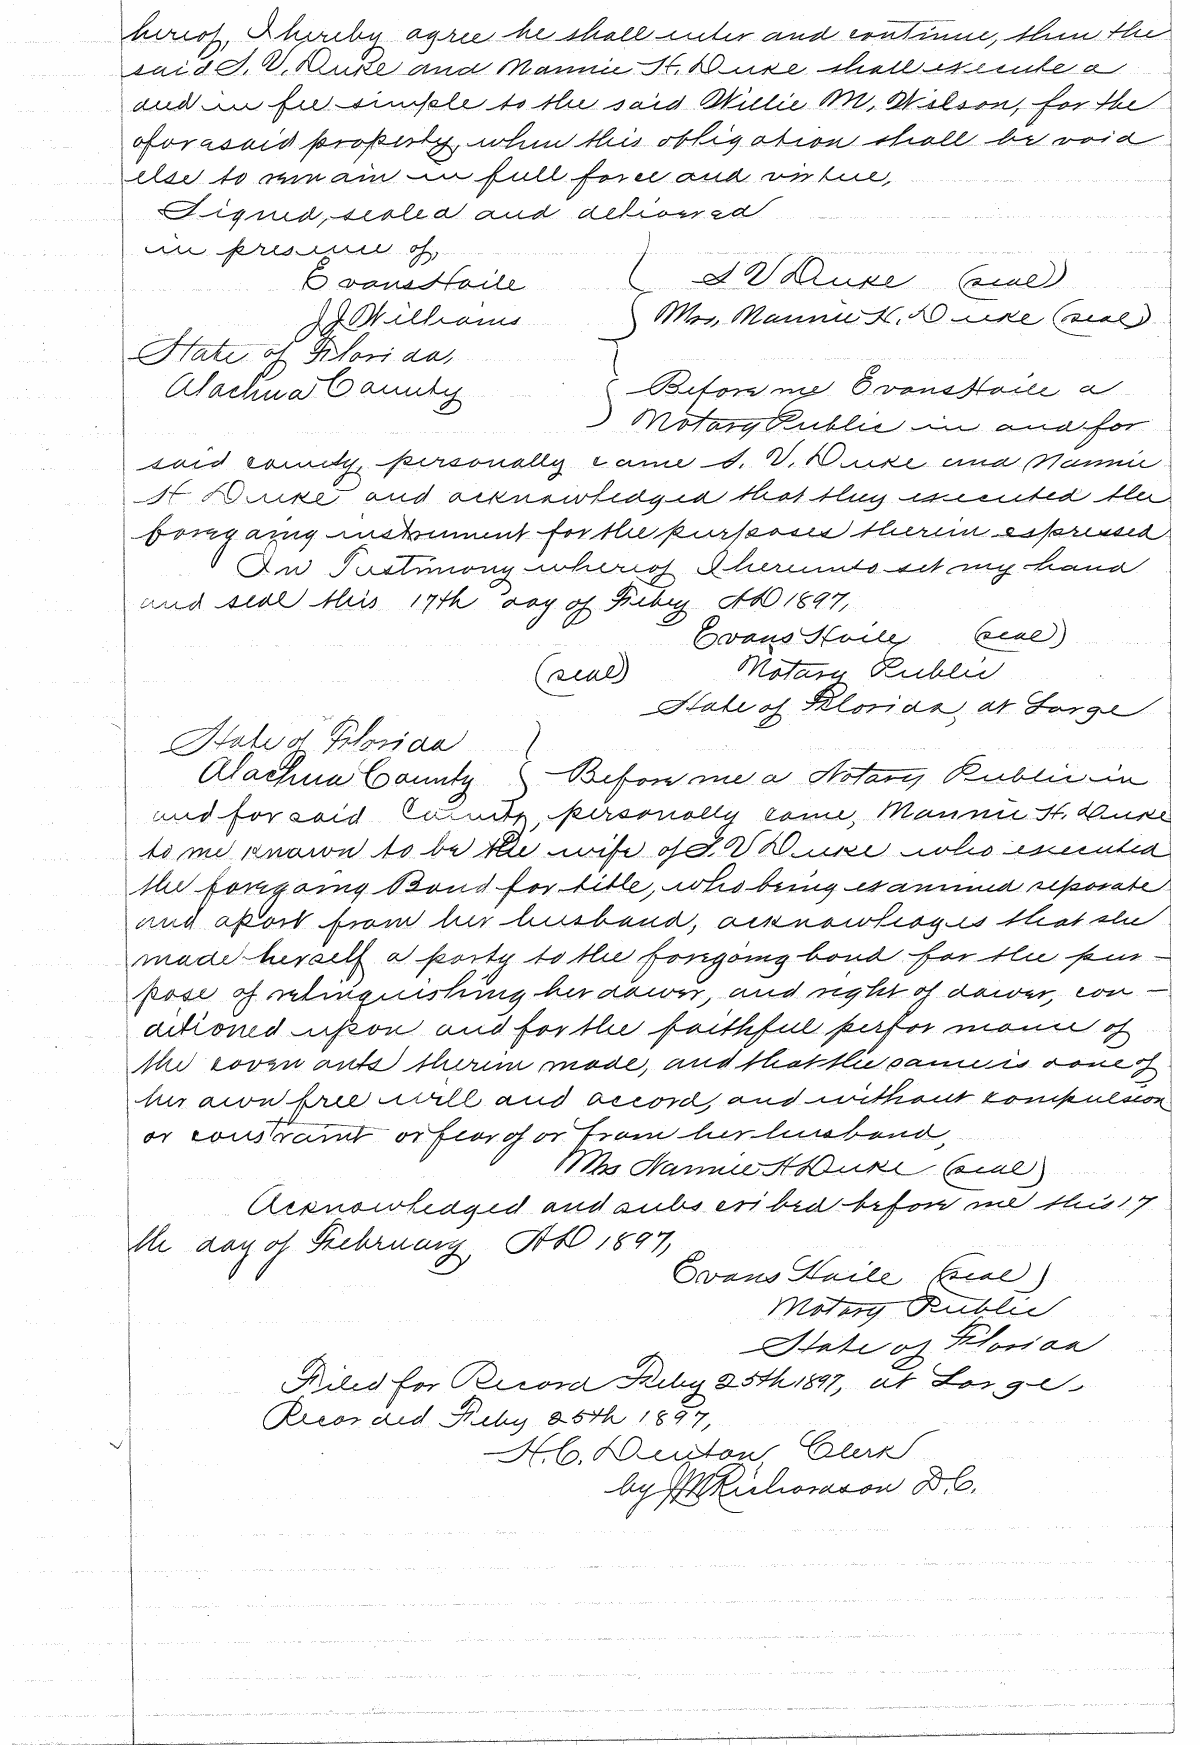 hereof, I hereby agree he shall enter and continue, then the
said S. V. Duke and Nannie H. Duke shall execute a
and in fee simple to the said Willie M. Wilson, for the
aforasaid property, when this obligation shall be void
else to remain in full force and virtue,
Signed, sealed and delivered
in presence of,
Evans Haile S V Duke (seal)
JJ Williams Mrs, Nannie H. Duke (seal)
State of Florida,
Alachua County Before me Evans Haile a
Notary Public in and for
said county, personally came S. V. Duke and Nannie
H Duke and acknowledged that they executed the
foregoing instrument for the purposes therein expressed
In Testimony whereof I hereunto set my hand
and seal this 17th day of Feby AD 1897,
Evans Haile (seal)
(seal) Notary Public
State of Florida, at Large
State of Florida
Alachua County Before me a Notary Public in
and for said County, personally came, Nannie H. Duke
to me known to be the wife of S. V Duke who executed
the foregoing Bond for title, who being examined seporate
and apart from her husband, acknowledges that she
made herself a party to the foregoing bond for the pur-
pose of relinquishing her dower, and right of dower, con-
ditioned upon and for the faithful performance of
the covenants therein made, and that the same is done of
her own free will and accord, and without compulsion
or constraint or fear of or from her husband,
Mrs Nannie H Duke (seal)
Acknowledged and subscribed before me this 17
th day of February, AD 1897,
Evans Haile (seal)
Notary Public
State of Florida
Filed for Record Feby 25th 1897, at Large.
Recorded Feby 25th 1897,
H. C. Denton, Clerk
by Richardson D. C.